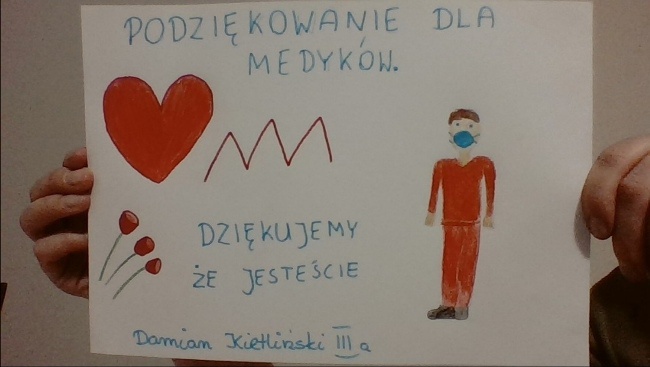 PODZIĘKOWANIE DLA
MEDYKÓW.
DZIĘKUJEMY
ŻE JESTEŚCIE
Damian Kietliński III a